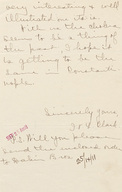 very interesting & well
illustrated etc etc.
With us the cholera
seems to be a thing of
the past, I hope it
is getting to be the
same in Constanti
nople.
Sincerely yours
P.S. Will you please
send the enclosed order
to